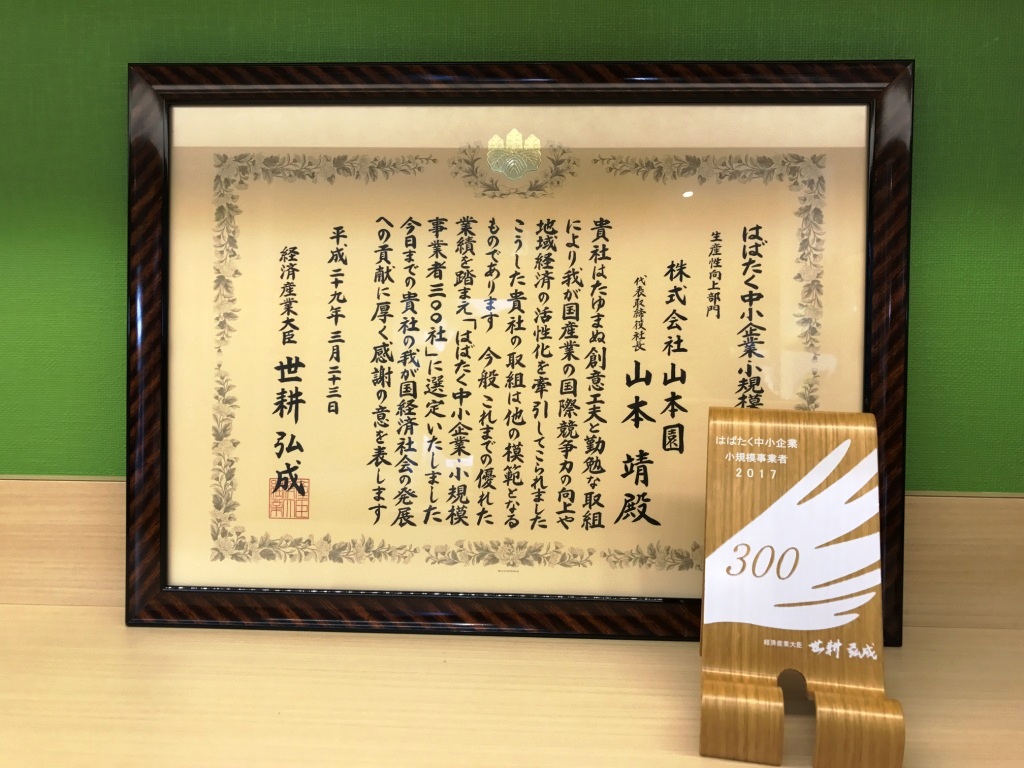 はばたく中小企業・小規模
生産性向上部門
株式会社山本園
代表取締役社長
山本 靖殿
貴社はたゆまぬ創意工夫と勤勉な取組
により我が国産業の国際競争力の向上や
地域経済の活性化を牽引してこられました
こうした貴社の取組は他の模範となる
ものであります 今般 これまでの優れた
業績を踏まえ「はばたく中小企業・小規模
事業者三〇〇社」に選定いたしました
今日までの貴社の我が国経済社会の発展
への貢献に厚く感謝の意を表します
平成二十九年三月二十三日
経済産業大臣
世耕弘成
はばたく中小企業
小規模事業者
2017
300
経済産業大臣 世耕弘成